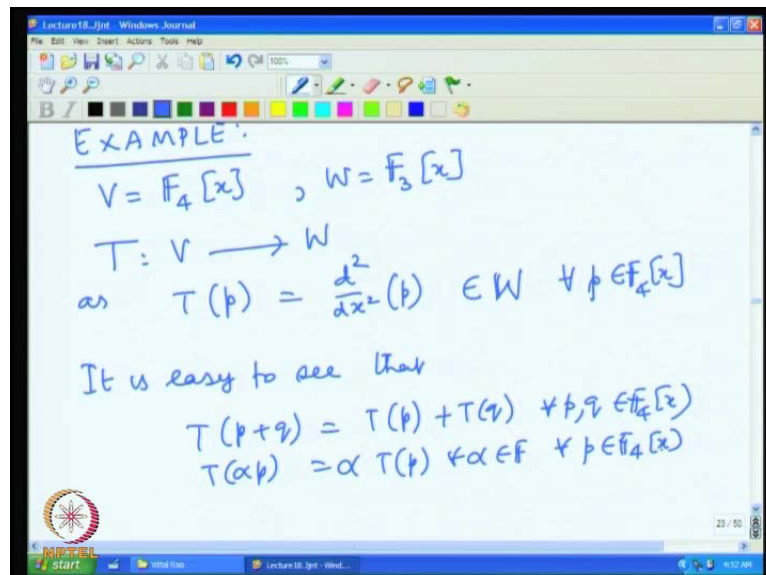 Lecture18.Jjnt - Windows Journal
File Edit View Insert Actions Tools Help
100%
B I
EXAMPLE:
V = 𝔽₄[x] , W = 𝔽₃[x]
T: V ⟶ W
as T(p) = d²/dx² (p) ∈ W ∀ p ∈ 𝔽₄[x]
It is easy to see that
T(p+q) = T(p) + T(q) ∀ p,q ∈ 𝔽₄[x]
T(αp) = α T(p) ∀ α ∈ F ∀ p ∈ 𝔽₄[x]
23 / 50
NPTEL
start Vittal Rao Lecture18.Jjnt - Wind... 4:52 AM